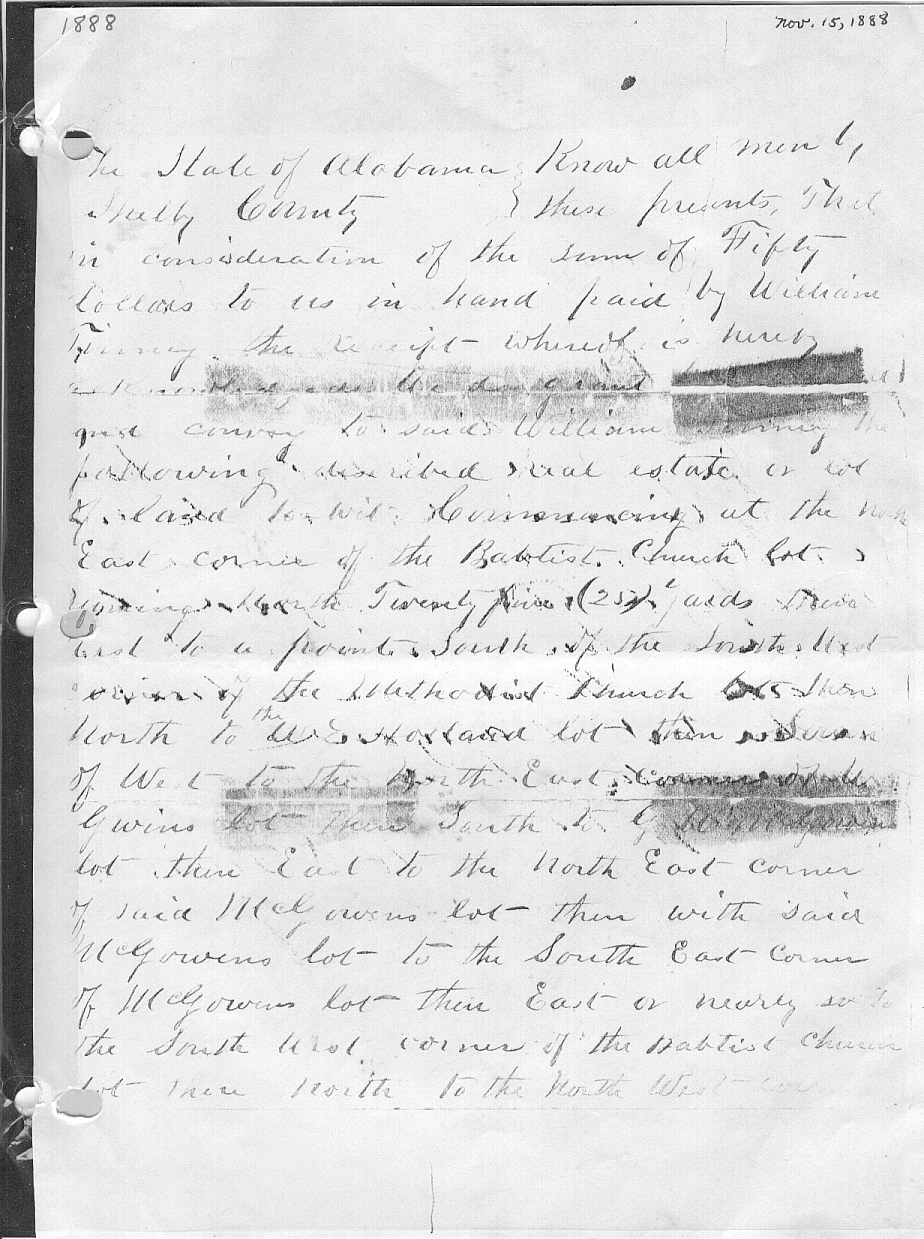 1888
Nov. 15, 1888
The State of Alabama } Know all men by
Shelby County } these presents, That
in consideration of the sum of Fifty
Dollars to us in hand paid by William
the receipt whereof is hereby
we do grant
and convey to said William the
following described real estate or lot
of land to wit. Commencing at the North
East corner of the Babtist Church lot
running North Twenty five (25) yards thence
East to a point South of the South West
corner of the Methodist Church lot then
North to the W E Holland lot then
of West to the North East corner of
Gwins lot then South to G W McGowens
lot then East to the North East corner
of said McGowens lot then with said
McGowens lot to the South East corner
of McGowens lot then East or nearly so to
the South West corner of the Babtist Church
lot thence North to the North West cor